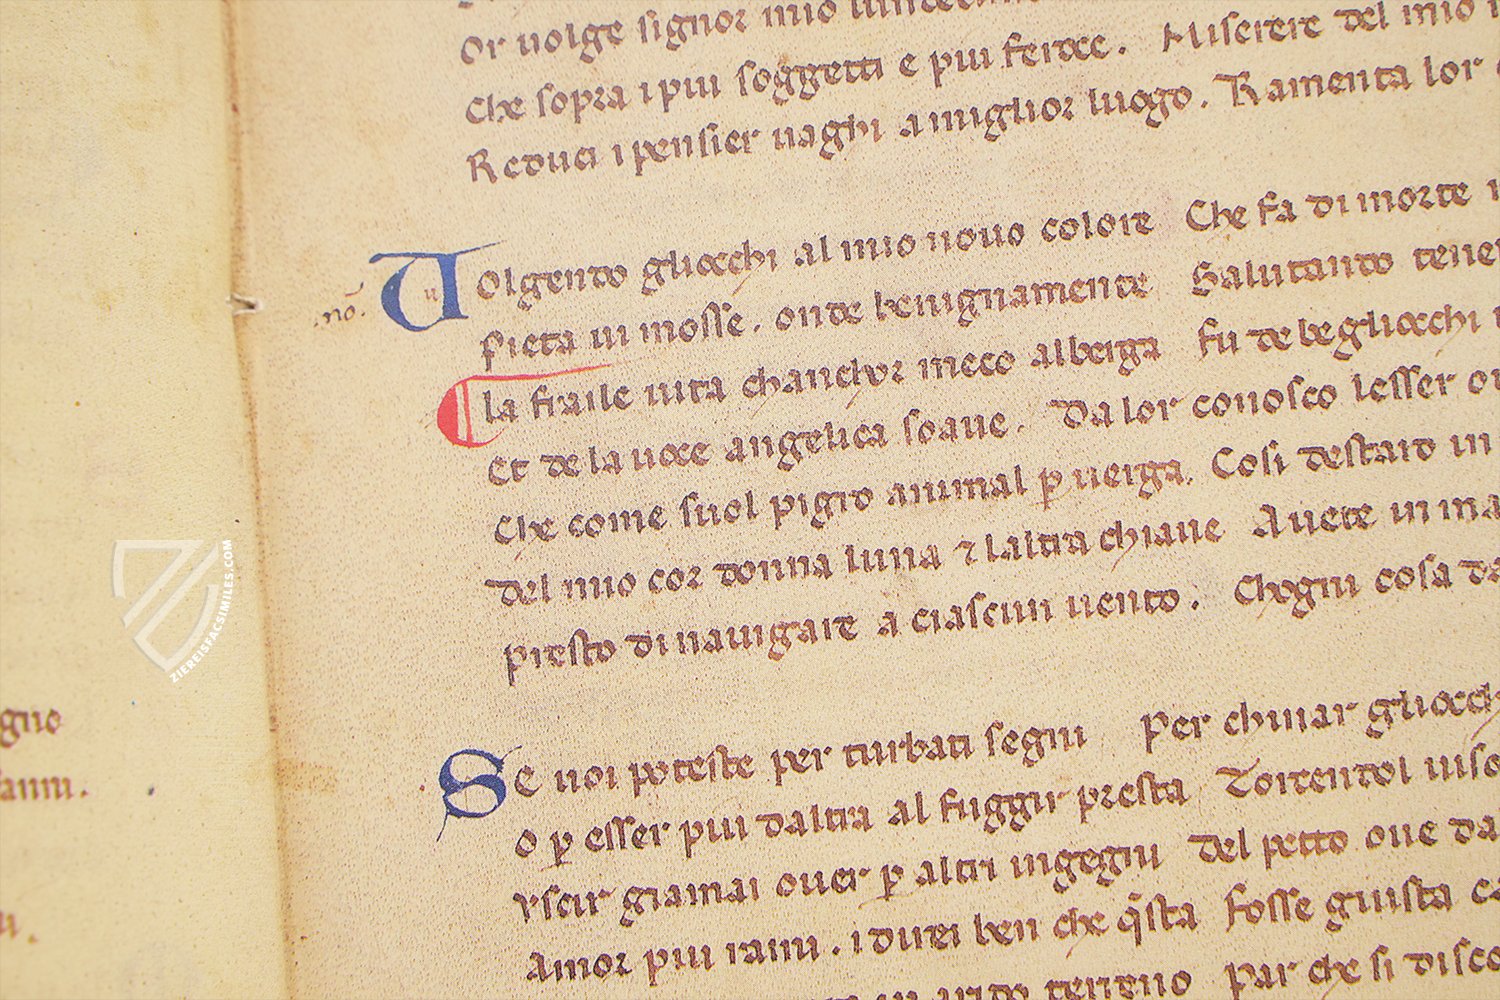 Or uolge signor mio
Che sopra i piu soggetti e piu feroce . Miserere del mio
Reduci i pensier uaghi a miglior luogo . Ramenta lor
.no. Volgendo gliocchi al mio nouo colore Che fa di morte
pieta ui mosse . onde benignamente Salutando
la fraile uita chanchor meco alberga Fu de begliocchi
Et de la uoce angelica soaue . Da lor conosco lesser
Che come suol pigro animal ꝑ uerga . Cosi destaro in
del mio cor donna luna ⁊ laltra chiaue Auete in
presto di nauigare a ciascun uento . Chogni cosa da
gno
anni .
Se uoi poteste per turbati segni Per chinar gliocchi
O ꝑ esser piu daltra al fuggir presta Torcendol
Vscir giamai ouer ꝑ altri ingegni Del petto oue da
Amor piu rami . i direi ben che q̄sta Fosse giusta
terreno Par che si
ZIEREISFACSIMILES.COM